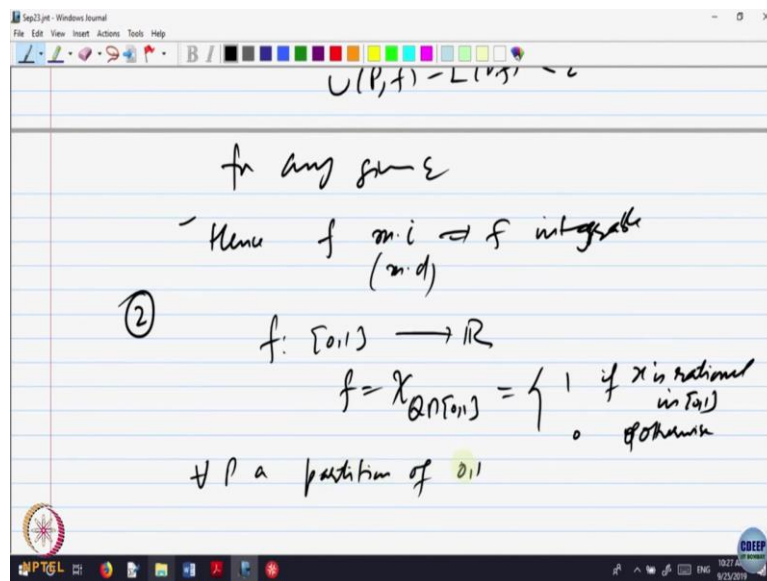 Sep23.jnt - Windows Journal
File Edit View Insert Actions Tools Help
B I
U(P,f) - L(P,f) < ε
for any given ε
Hence f m.i ⇒ f integrable
(m.d)
② f: [0,1] → ℝ
f = χ_{Q∩[0,1]} = { 1 if x is rational
in [0,1]
0 otherwise
∀ P a partition of 0,1
NPTEL
CDEEP
IIT BOMBAY
ENG
10:27 A
9/25/2019